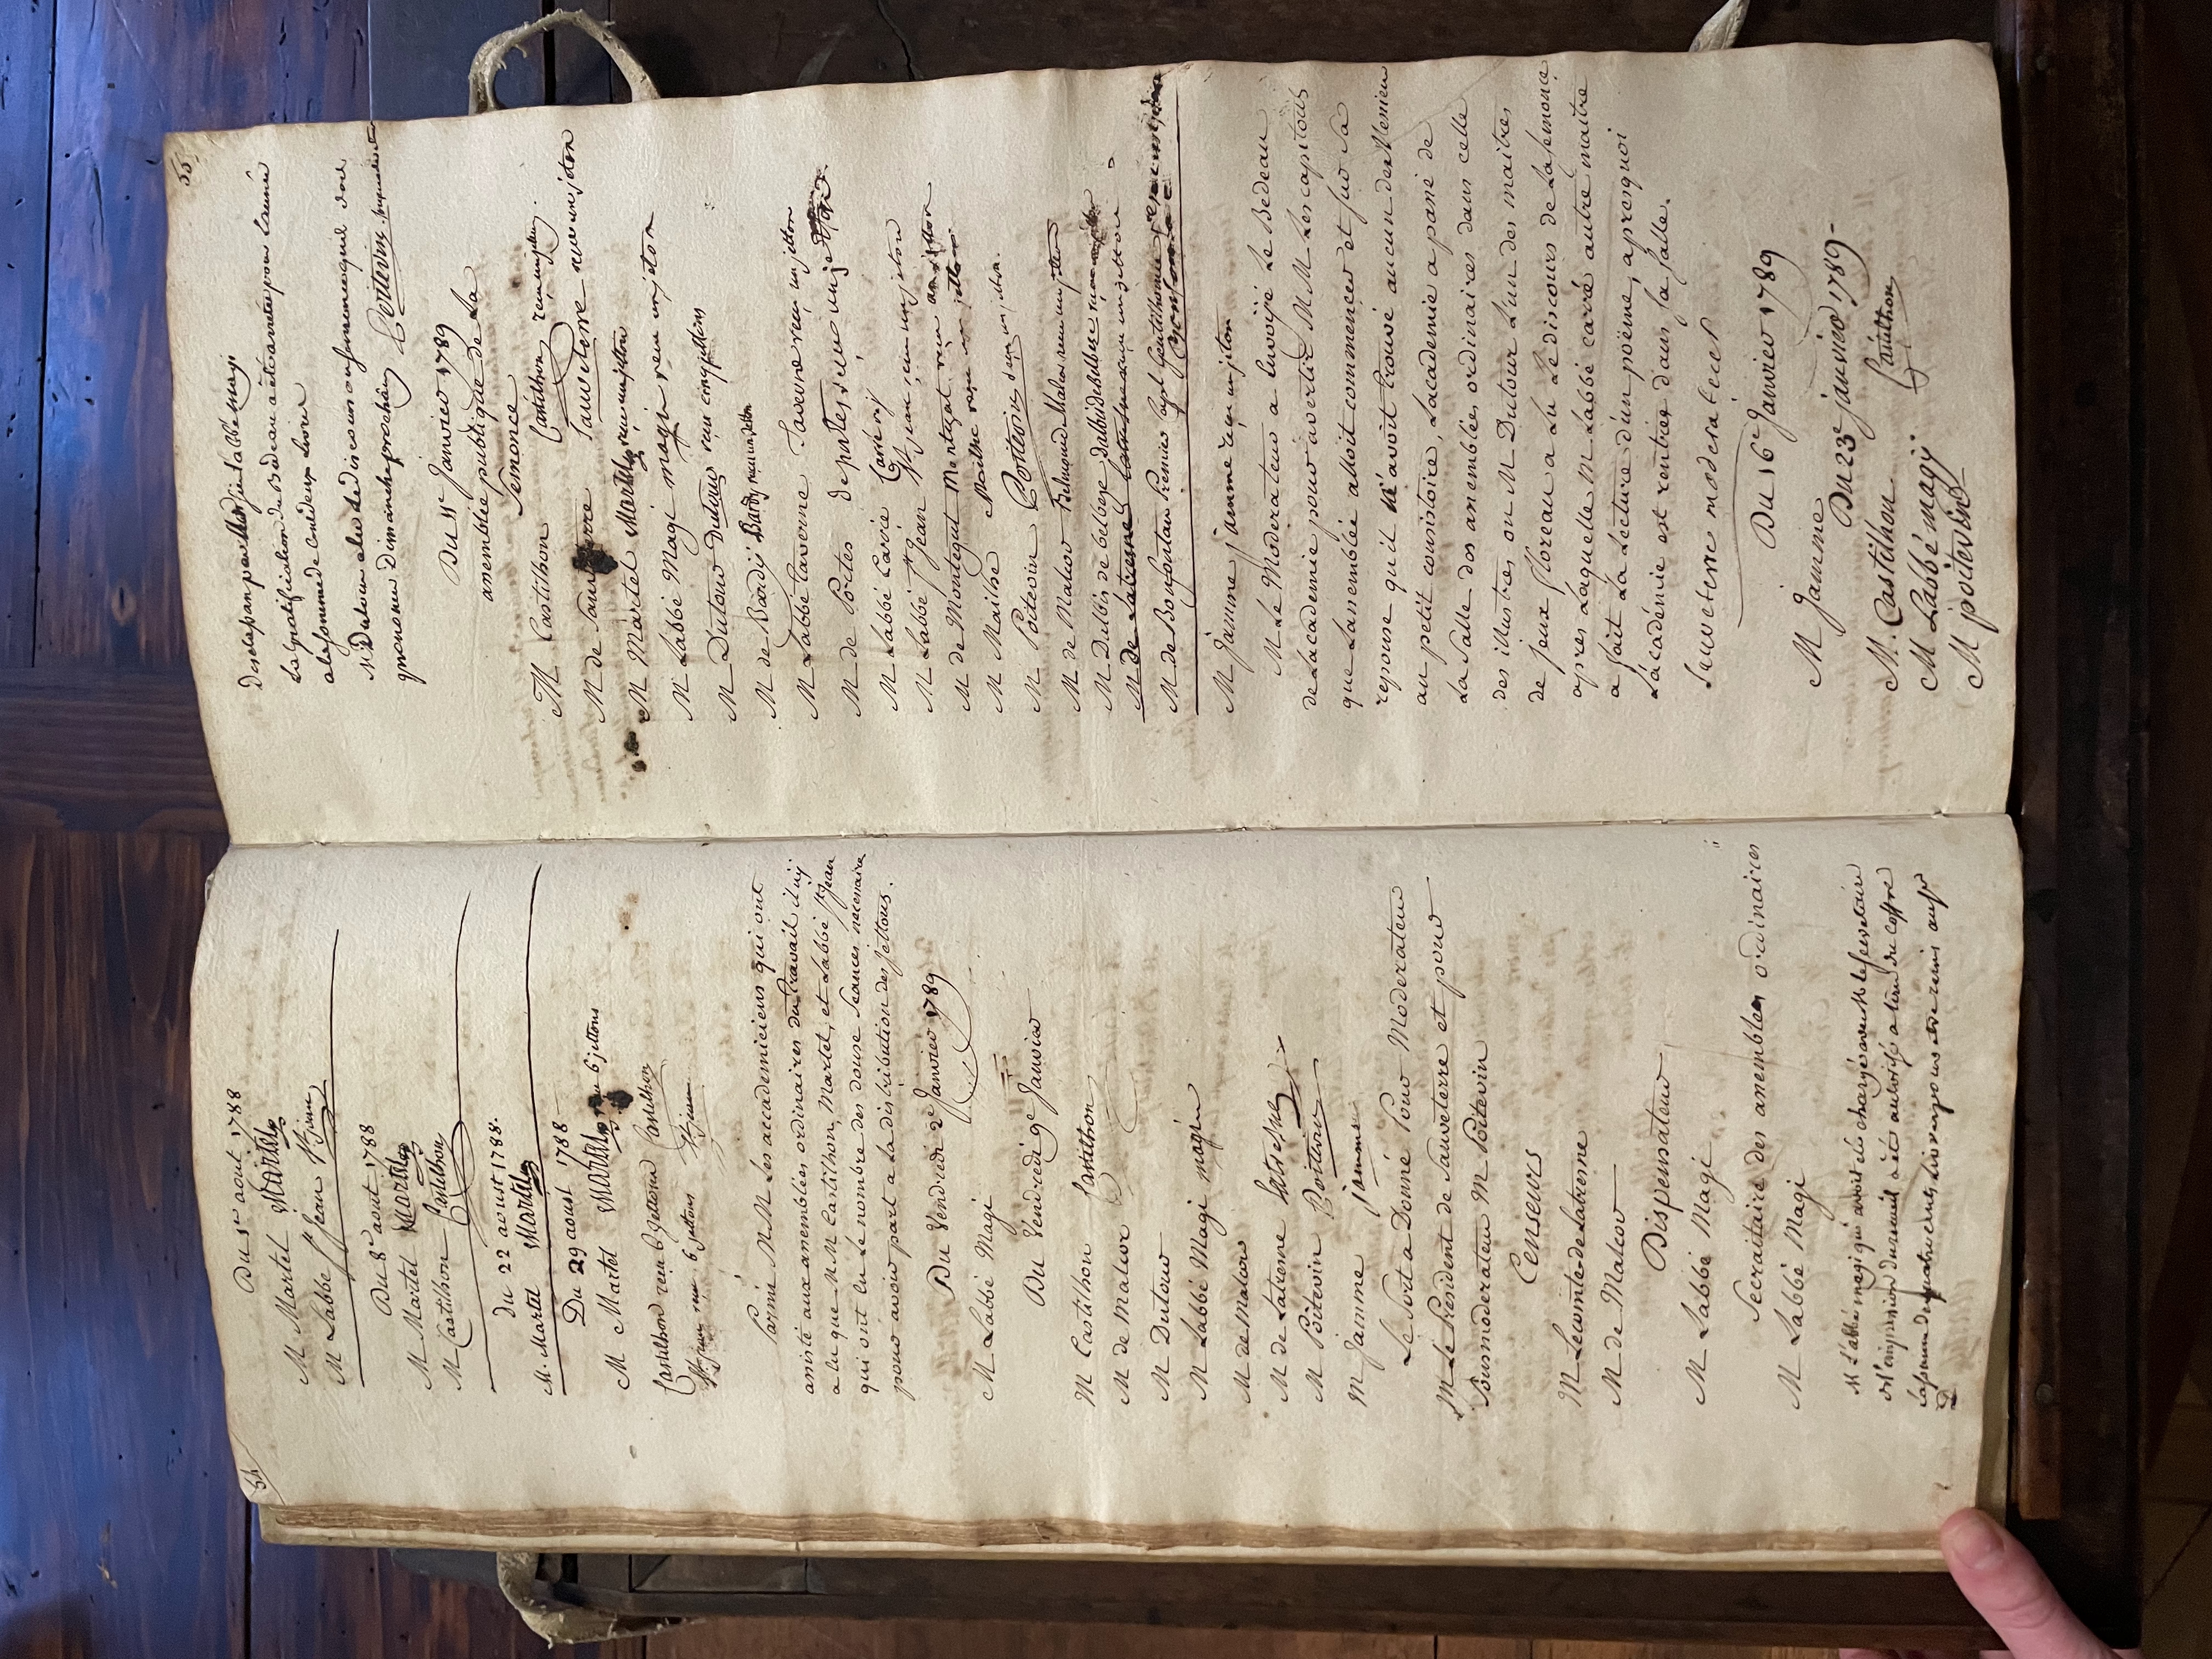 54
Du 1er aout 1788
M Martel Martel
M Labbé St Jean St jean
Du 8e aout 1788
M Martel Martel
M Castilhon Castilhon
du 22 aoust 1788.
M. Martel Martel
Du 29 aoust 1788
M Martel Martel reçu 6 jettons
Castilhon reçu 6 jettons Castilhon
St jean reçu 6 jettons St jean
Parmi MM Les accademiciens qui ont
assisté aux assemblées ordinaires du travail il n'y
a eu que MM Castilhon, Martel, et Labbé St Jean
qui ont eu le nombre des douse seances necessaire
pour avoir part a la distribution des jettons.
Du Vendredi 2e Janvier 1789
M Labbé Magi
Du Vendredi 9e Janvier
M Castilhon Castilhon
M de Malcor
M Dutour
M Labbé Magi magi
M de Malcor
M de Latresne Latresne
M Poitevin Poitevin
M Jamme jamme
Le Sort a Donné Pour Moderateur
M Le President de Sauveterre et pour
Sousmoderateur M Poitevin
Censeurs
M Le comte de Latresne
M de Malcor
Dispensateur
M Labbé Magi
Secraitaire des assemblées ordinaires
M Labbé Magi
M L'abbé magi qui avoit été chargé avec M le secretaire
de l'impression du recueil a été autorisé a tirer du coffre
la somme de quatre cens livres pour etre remis au Sr
55
Desclassan par M Magi
La gratification du Bedeau a été arretée pour l'année
a la somme de cent deux livres
M Dutour a lu le discours qu'il doit
prononcer Dimanche prochain Poitevin
Du 11e Janvier 1789
assemblée publique de La
Semonce
M Castilhon Castilhon reçu un jetton.
M de Sauveterre Sauveterre reçu un jeton
M Martel Martel reçu un jetton
M Labbé Magi magi reçu un jeton
M Dutour Dutour reçu cinq jettons
M de Bardy Bardy reçu un jeton
M Labbé Taverne Taverne reçu un jetton
M de Portes de portes reçu un jeton
M Labbé Carrié Carrié
M Labbé St Jean St jean reçu un jeton
M de Montegut Montegut reçu un jetton
M Mailhe Mailhe reçu un jeton
M Poitevin Poitevin reçu un jetton.
M de Malcor Malcor reçu un jetton
M Dulbis de belbeze dalbis de belbeze reçu
M de Latresne Latresne reçu un jetton
M de Bonfontan Premier Capl Gentilhomme
M Jamme jamme reçu un jeton
M Le Moderateur a Envoyé Le Bedeau
de Lacademie pour avertir MM Les capitouls
que Lassemblée alloit commencer et sur sa
reponse qu'il n'avoit trouvé aucun des Messieurs
au petit consistoire, Lacademie a passé de
La Salle des assemblées ordinaires dans celle
des illustres ou M Dutour L'un des maitres
de jeux floreaux a Lu Le discours de La semonce
apres Laquelle M Labbé carré autre maitre
a fait La Lecture d'un poëme, apres quoi
L'académie est rentrée dans sa Salle.
Sauveterre moderateur
Du 16e Janvier 1789
M Jamme
Du 23e janvier 1789-
M. Castilhon Castilhon
M Labbé magy
M poitevin